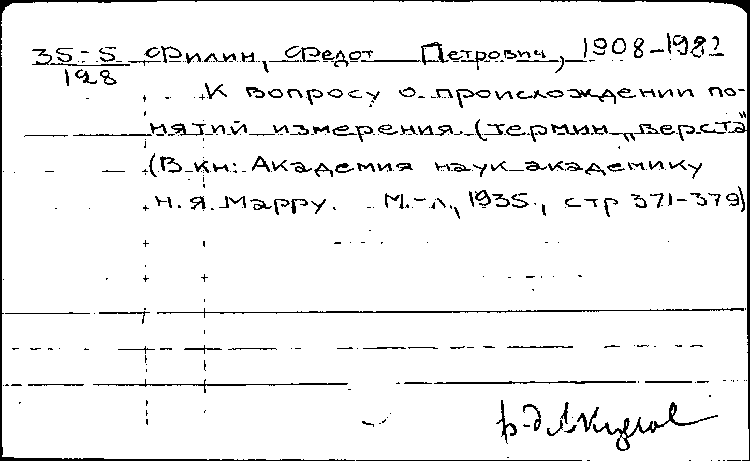 35-5 Филин, Федот Петрович, 1908-1982
128
К вопросу о происхождении по-
нятий измерения (термин „верста"
(В кн: Академия наук академику
Н.Я. Марру. М.-Л., 1935, стр 371-379)
р-д